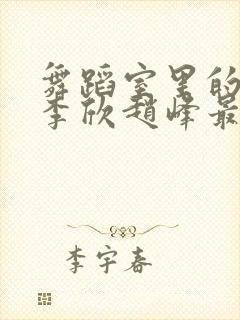 舞蹈室里的
李欣赵峰最
李宇春